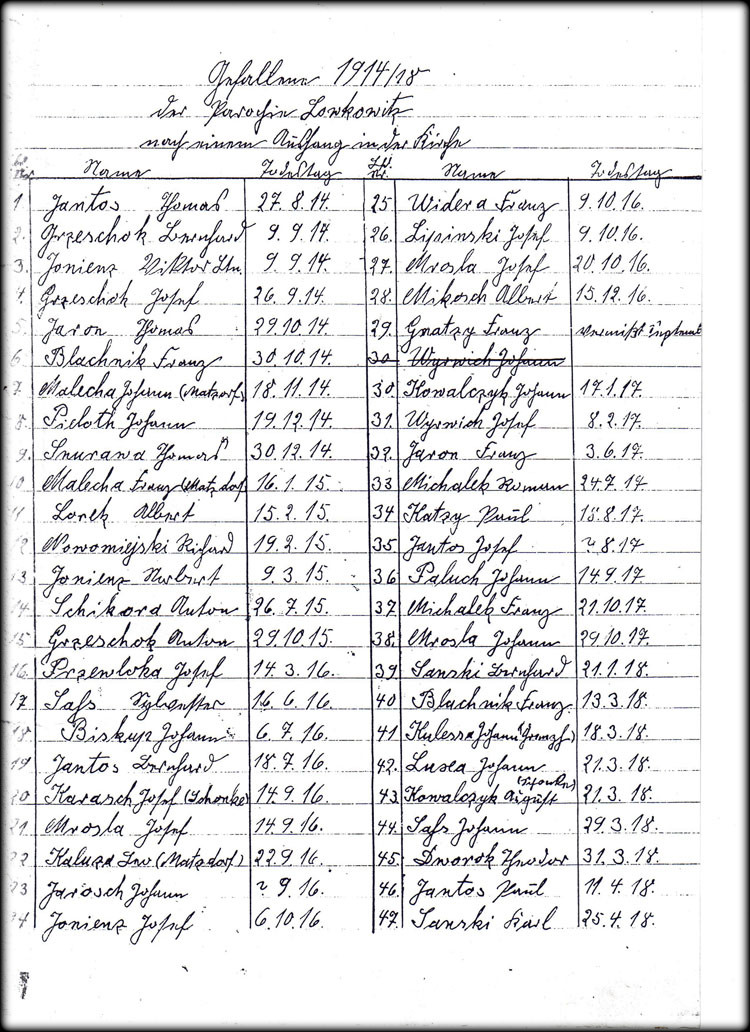 Gefallene 1914/18
der Parochie Lowkowitz
nach einem Aushang in der Kirche
Lfd. Nr. Name Todestag
1 Jantos Thomas 27.8.14.
2. Grzeschok Bernhard 9.9.14.
3. Jonienz Viktor Ltn. 9.9.14.
4. Grzeschok Josef 26.9.14.
5. Jaron Thomas 29.10.14.
6. Blachnik Franz 30.10.14.
7. Malecha Johann (Matzdorf) 18.11.14.
8. Pieloth Johann 19.12.14.
9. Snurawa Thomas 30.12.14.
10 Malecha Franz (Matzdorf 16.1.15.
11 Lorek Albert 15.2.15.
12 Nowomiejski Richard 19.2.15.
13. Jonienz Norbert 9.3.15.
14. Schikora Anton 26.7.15.
15 Grzeschok Anton 29.10.15.
16. Przewloka Josef 14.3.16.
17. Sass Sylvester 16.6.16.
18. Biskup Johann 6.7.16.
19 Jantos Bernhard 18.7.16.
20 Karasch Josef (Schonke) 14.9.16.
21. Mrosla Josef 14.9.16.
22 Kaluza Leo (Matzdorf) 22.9.16.
23 Jarosch Johann ? 9.16.
24 Jonienz Josef 6.10.16.
Lfd. Nr. Name Todestag
25 Widera Franz 9.10.16.
26. Lipinski Josef 9.10.16.
27. Mrosla Josef 20.10.16.
28. Mikosch Albert 15.12.16.
29. Gnatzy Franz vermißt
30 Wyrwich Johann
30. Kowalczyk Johann 17.1.17.
31. Wyrwich Josef 8.2.17.
32. Jaron Franz 3.6.17.
33 Michalek Roman 24.7.17
34 Katzy Paul 18.8.17.
35 Jantos Josef ? 8.17
36 Paluch Johann 14.9.17
37 Michalek Franz 21.10.17.
38. Mrosla Johann 29.10.17.
39 Sanski Bernhard 21.1.18.
40 Blachnik Franz 13.3.18.
41 Kulessa Johann 18.3.18.
42. Lusca Johann 21.3.18.
43. Kowalczyk August 21.3.18.
44. Sass Johann 29.3.18.
45. Dworok Theodor 31.3.18.
46. Jantos Paul 11.4.18.
47. Sanski Karl 25.4.18.